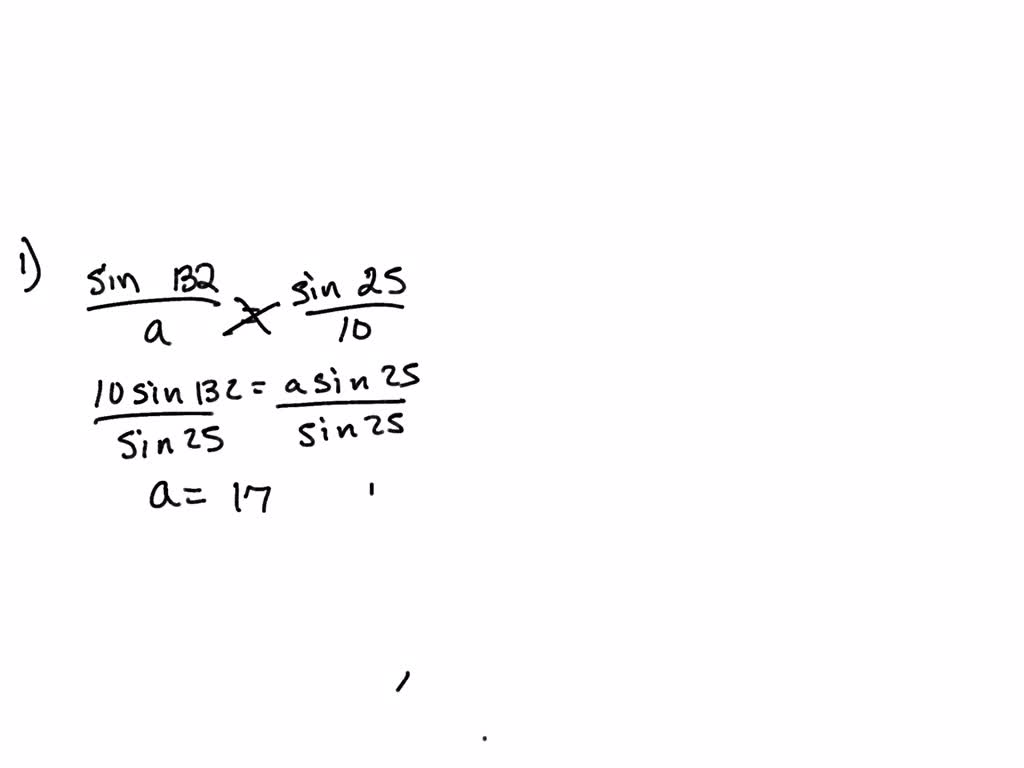 1)
sin 132 / a = sin 25 / 10
10 sin 132 / sin 25 = a sin 25 / sin 25
a = 17